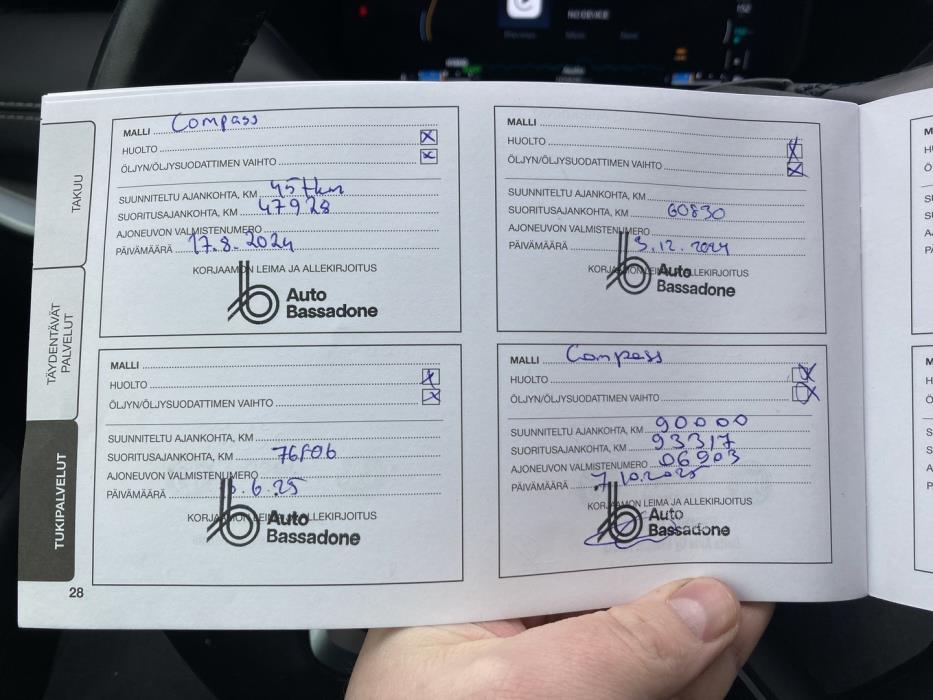 NO DEVICE
TAKUU
TÄYDENTÄVÄT
PALVELUT
TUKIPALVELUT
MALLI Compass
HUOLTO X
ÖLJYN/ÖLJYSUODATTIMEN VAIHTO X
SUUNNITELTU AJANKOHTA, KM 45 tkm
SUORITUSAJANKOHTA, KM 47928
AJONEUVON VALMISTENUMERO
PÄIVÄMÄÄRÄ 17.8.2024
KORJAAMON LEIMA JA ALLEKIRJOITUS
Auto
Bassadone
MALLI
HUOLTO X
ÖLJYN/ÖLJYSUODATTIMEN VAIHTO X
SUUNNITELTU AJANKOHTA, KM
SUORITUSAJANKOHTA, KM 60830
AJONEUVON VALMISTENUMERO
PÄIVÄMÄÄRÄ 3.12.2024
KORJAAMON LEIMA JA ALLEKIRJOITUS
Auto
Bassadone
MALLI
HUOLTO X
ÖLJYN/ÖLJYSUODATTIMEN VAIHTO X
SUUNNITELTU AJANKOHTA, KM
SUORITUSAJANKOHTA, KM
AJONEUVON VALMISTENUMERO
PÄIVÄMÄÄRÄ
KORJAAMON LEIMA JA ALLEKIRJOITUS
Auto
Bassadone
MALLI Compass
HUOLTO X
ÖLJYN/ÖLJYSUODATTIMEN VAIHTO X
SUUNNITELTU AJANKOHTA, KM 90000
SUORITUSAJANKOHTA, KM 93317
AJONEUVON VALMISTENUMERO 06903
PÄIVÄMÄÄRÄ 7.10.2025
KORJAAMON LEIMA JA ALLEKIRJOITUS
Auto
Bassadone
28